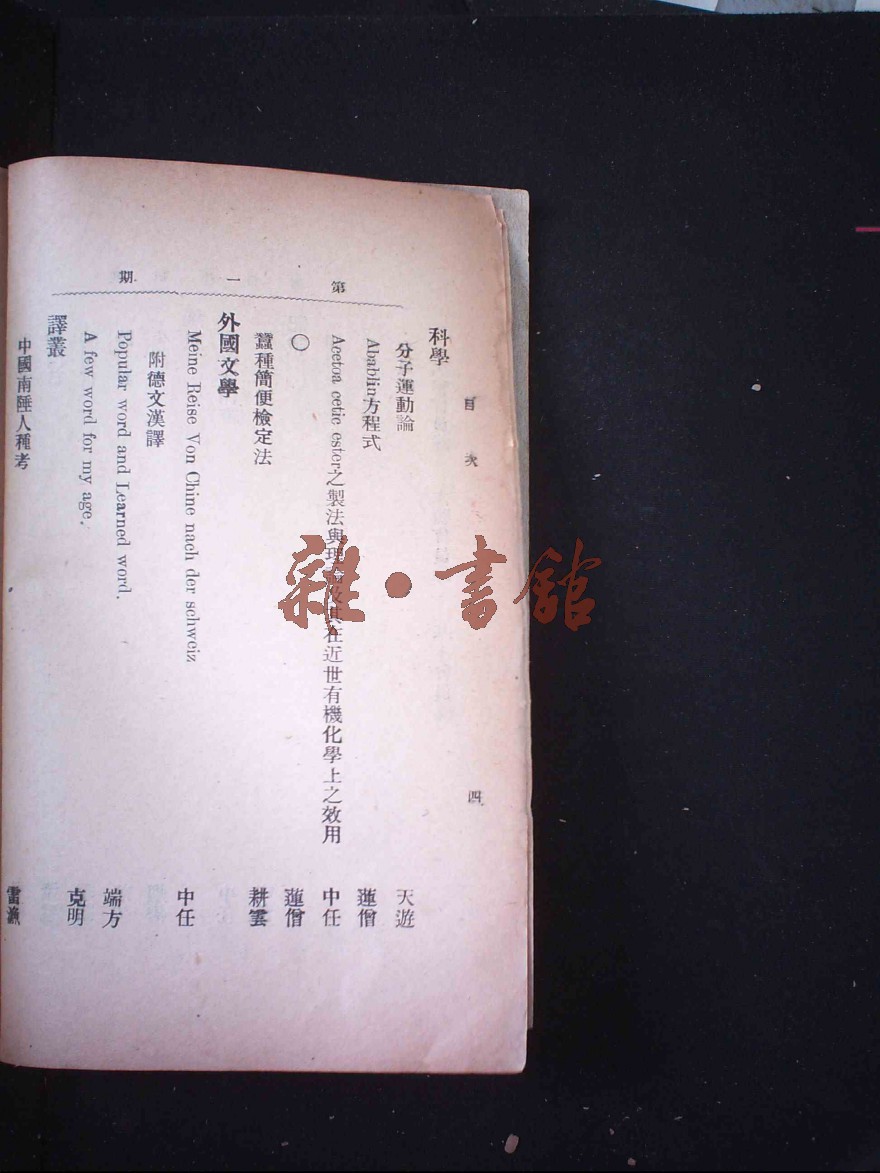 目次
四
第一期
科學
分子運動論 天遊
Abablin方程式 蓮僧
Acetoa cetic ester之製法與理論及其在近世有機化學上之效用 中任
○ 蓮僧
蠶種簡便檢定法 耕雲
外國文學
Meine Reise Von Chine nach der schweiz 中任
附德文漢譯
Popular word and Learned word. 端方
A few word for my age. 克明
譯叢
中國南陲人種考 雷漁
雜·書館